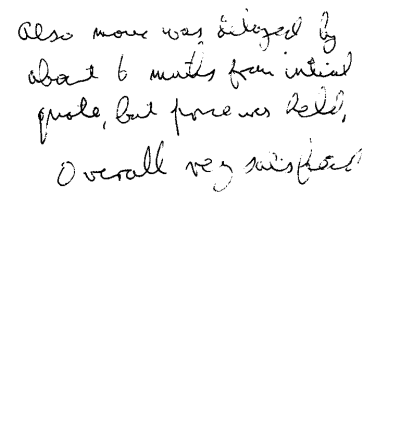 Also move was delayed by
about 6 months from initial
quote, but price was held.
Overall very satisfied